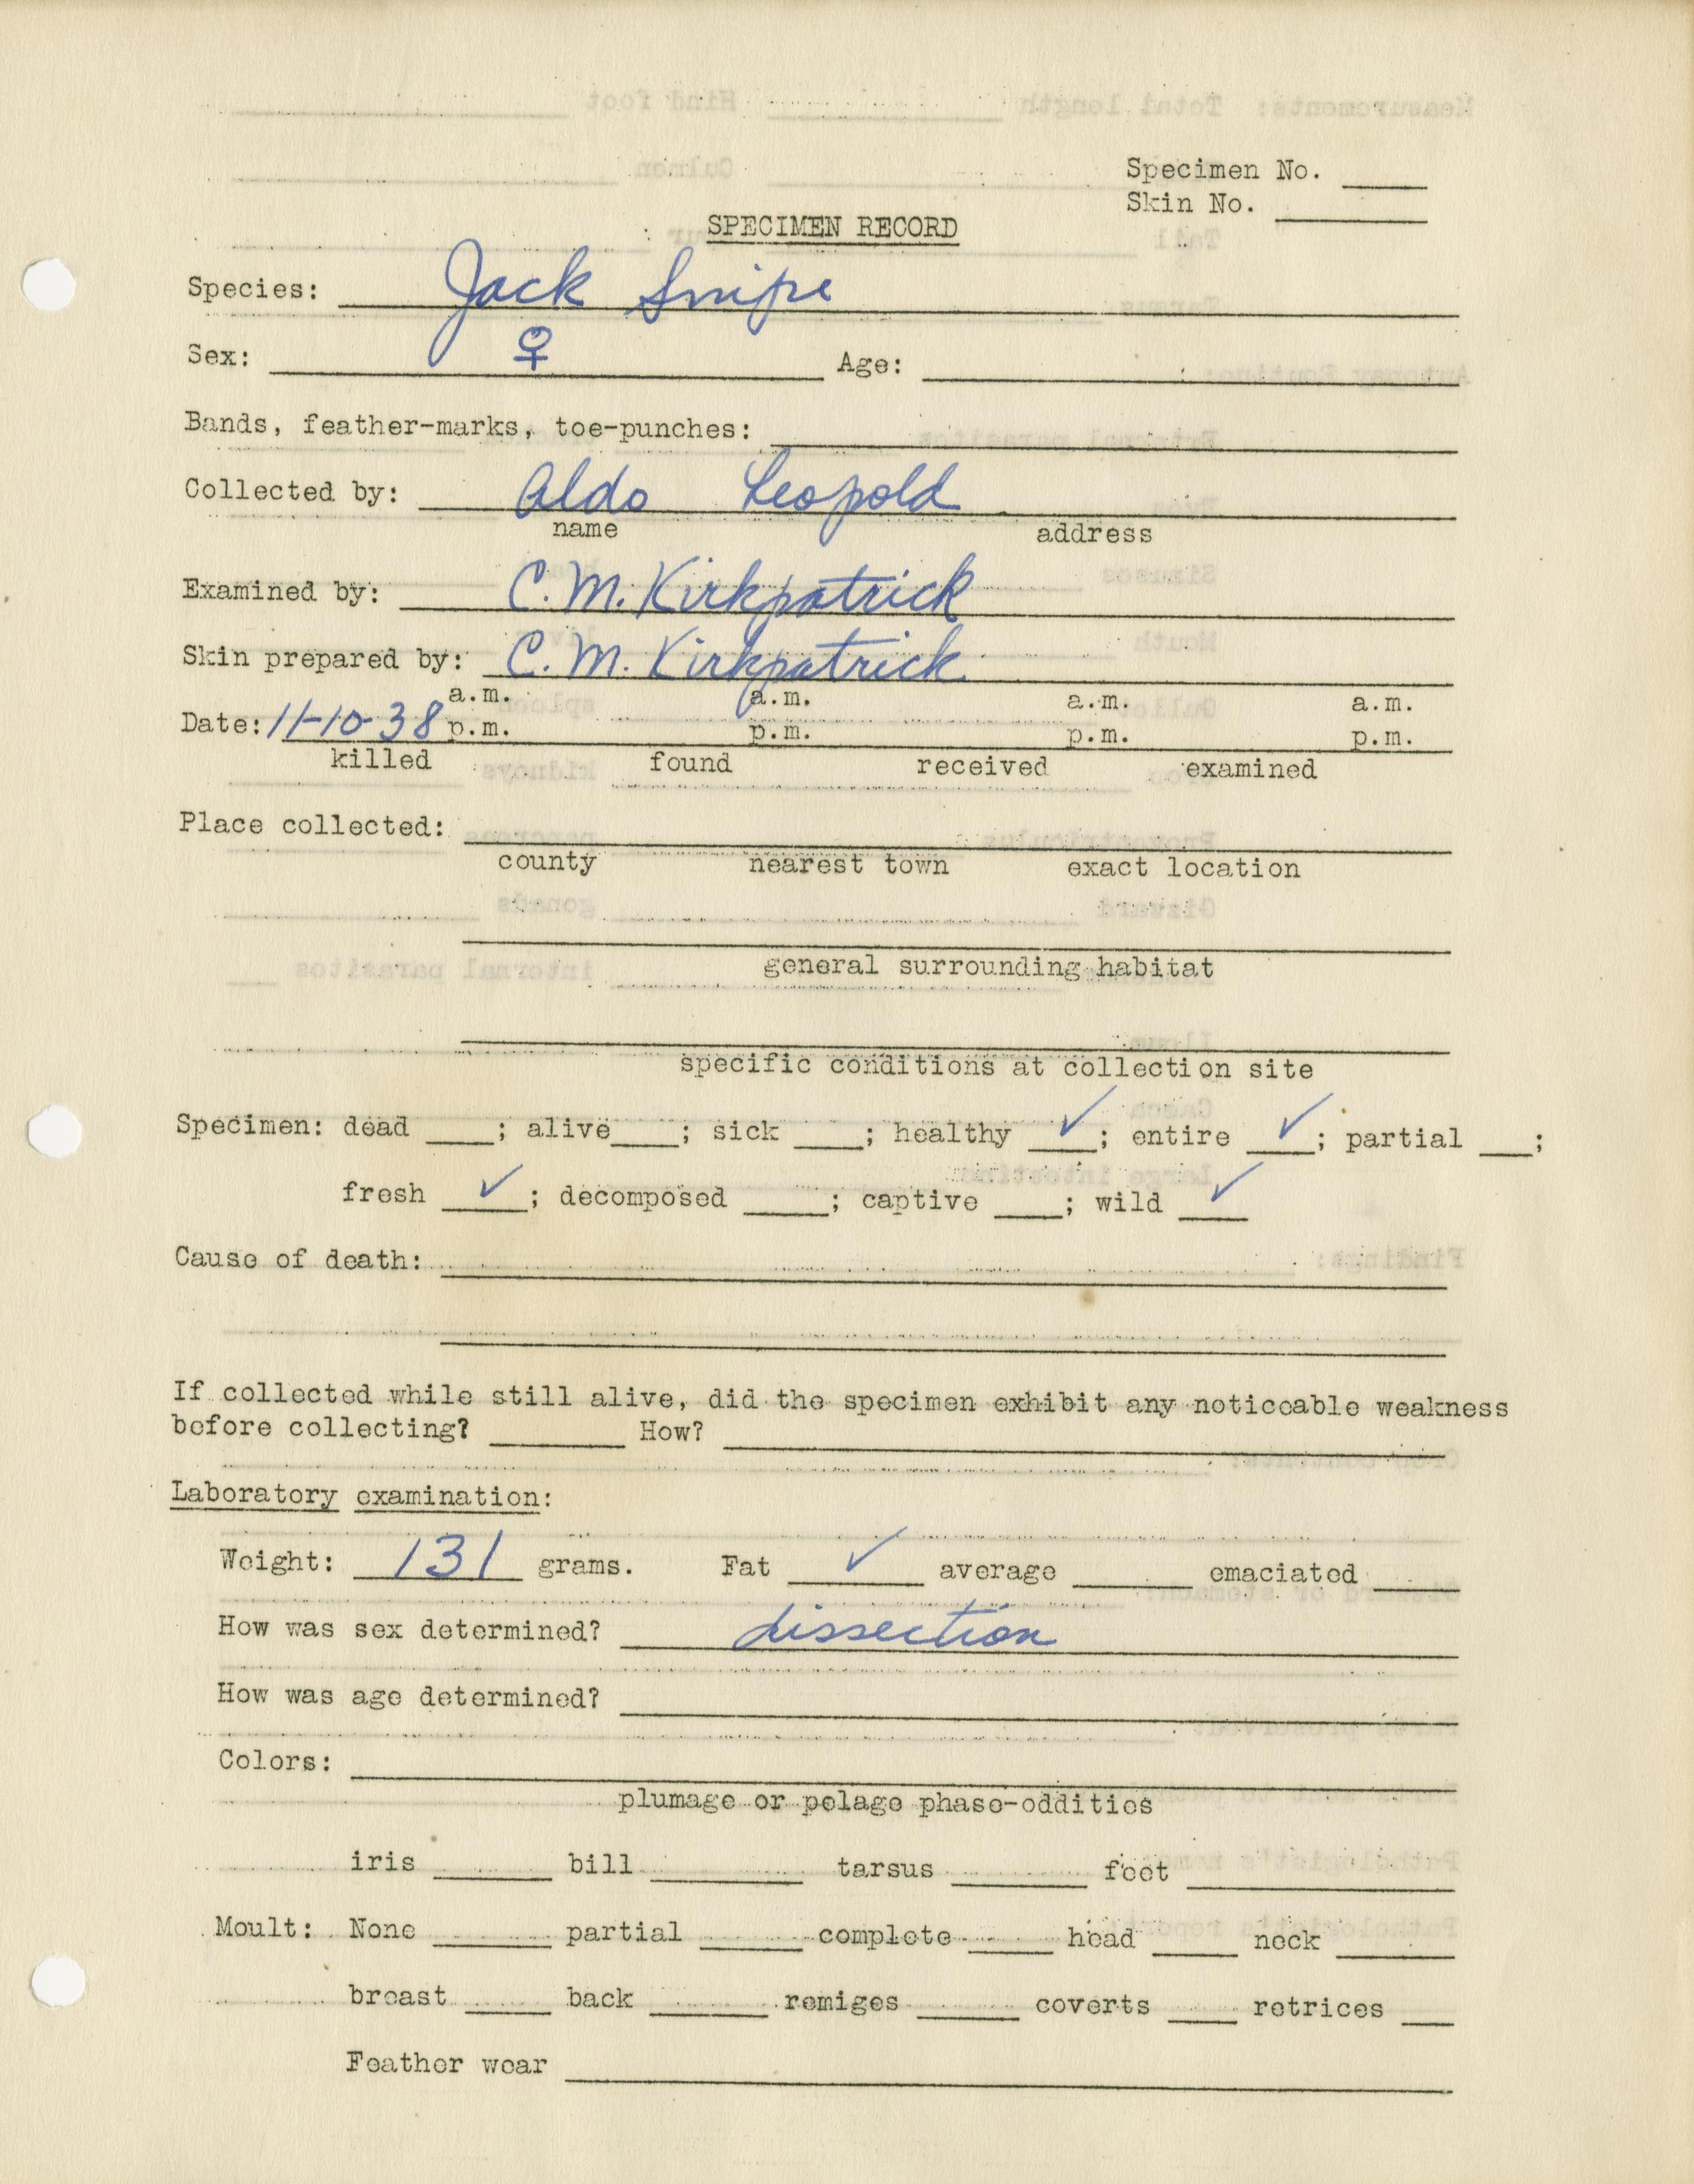 Specimen No. ____
Skin No. ____
SPECIMEN RECORD
Species: Jack Snipe
Sex: ♀ Age: ____
Bands, feather-marks, toe-punches: ____
Collected by: Aldo Leopold
name address
Examined by: C. M. Kirkpatrick
Skin prepared by: C. M. Kirkpatrick
a.m. a.m. a.m. a.m.
Date: 11-10-38 p.m. p.m. p.m. p.m.
killed found received examined
Place collected: ____
county nearest town exact location
general surrounding habitat
specific conditions at collection site
Specimen: dead ____; alive ____; sick ____; healthy ✓; entire ✓; partial ____;
fresh ✓; decomposed ____; captive ____; wild ✓
Cause of death: ____
If collected while still alive, did the specimen exhibit any noticeable weakness
before collecting? ____ How? ____
Laboratory examination:
Weight: 131 grams. Fat ✓ average ____ emaciated ____
How was sex determined? dissection
How was age determined? ____
Colors: ____
plumage or pelage phase-oddities
iris ____ bill ____ tarsus ____ feet ____
Moult: None ____ partial ____ complete ____ head ____ neck ____
breast ____ back ____ remiges ____ coverts ____ retrices ____
Feather wear ____